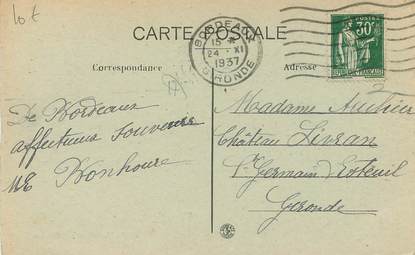 lot
CARTE POSTALE
BORDEAUX
15
24 - XI
1937
GIRONDE
POSTES
30c
REPUBLIQUE FRANÇAISE
Correspondance
Adresse
De Bordeaux
affectueux souvenir
ME Bonhoure
Madame
Château Livran
St Germain d'Esteuil
Gironde